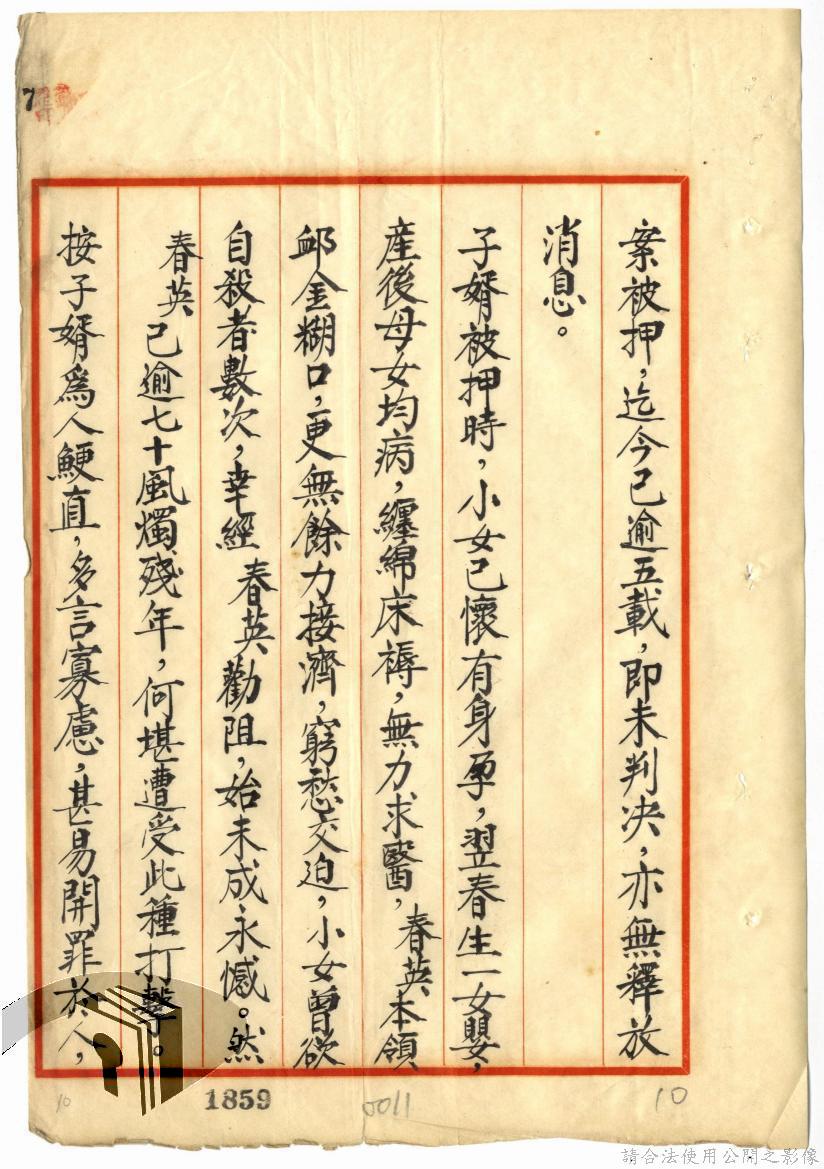 案被押，迄今已逾五載，即未判决，亦無釋放
消息。
子婿被押時，小女已懷有身孕，翌春生一女嬰，
産後母女均病，纏綿床褥，無力求醫，春英本領
卹金糊口，更無餘力接濟，窮愁交迫，小女曾欲
自殺者數次，幸經　春英勸阻，始未成永憾。然
春英已逾七十風燭殘年，何堪遭受此種打擊。
按子婿爲人鯁直，多言寡慮，甚易開罪於人，
7
10
1859
0011
10
請合法使用公開之影像